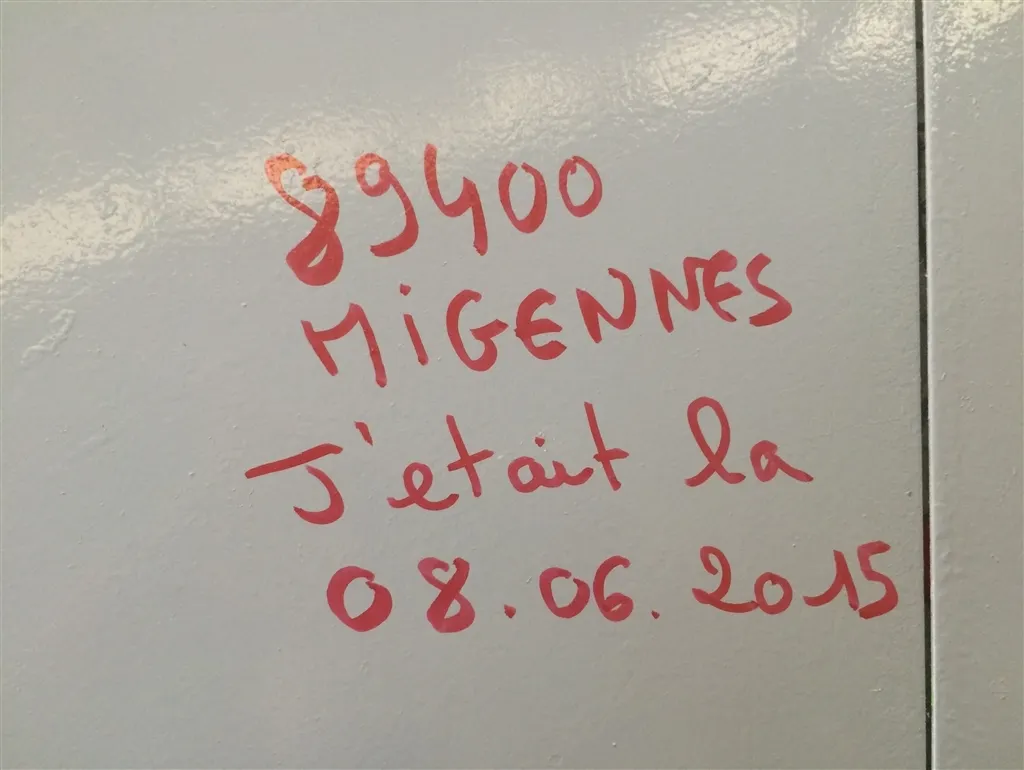 89400
MiGENNES
J'etait la
08.06.2015